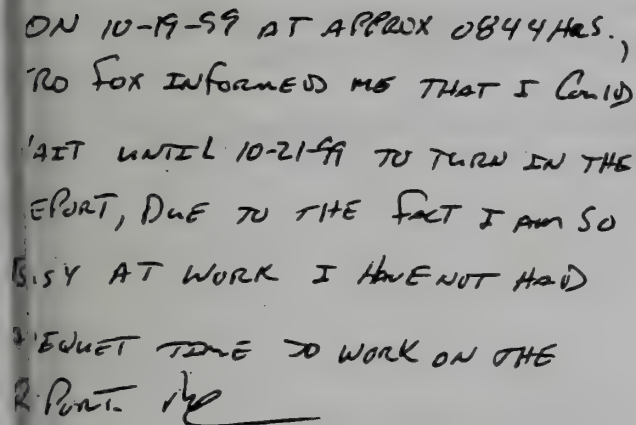 ON 10-19-99 AT APPROX 0844 HRS.,
RO FOX INFORMED ME THAT I COULD
AIT UNTIL 10-21-99 TO TURN IN THE
EPORT, DUE TO THE FACT I AM SO
SY AT WORK I HAVE NOT HAD
EQUET TIME TO WORK ON THE
R PORT.